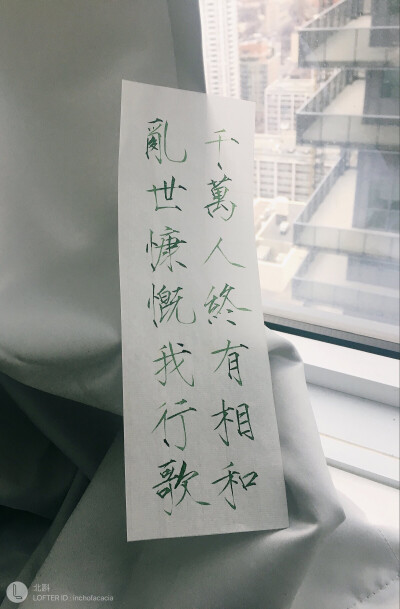 千萬人終有相和
亂世慷慨我行歌
北斟
LOFTER ID : incholacacia